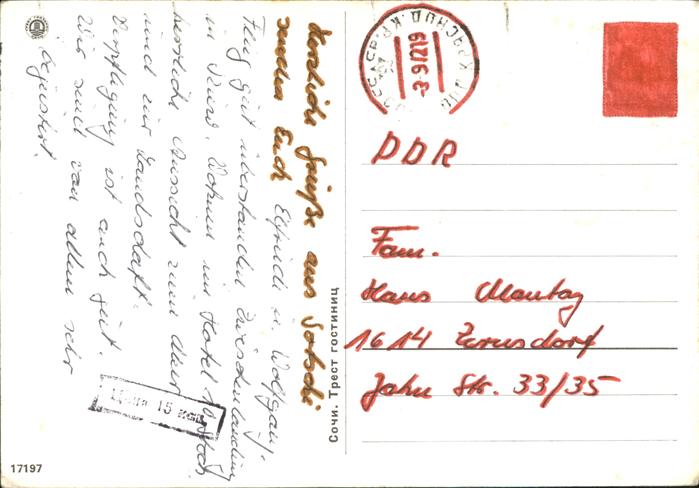 Herzliche Grüße aus Sotschi
senden Euch Elfriede u. Wolfgang.
Flug gut überstanden Zwischenlandung
in Kiew. Wohnen im Hotel 10. Stock
herrliche Aussicht zum Meer
und zur Landschaft.
Verpflegung ist auch gut.
Wir sind von allem sehr
begeistert.
17197
Сочи. Трест гостиниц
DDR
Fam.
Hans Montag
1614 Zernsdorf
Jahn Str. 33/35